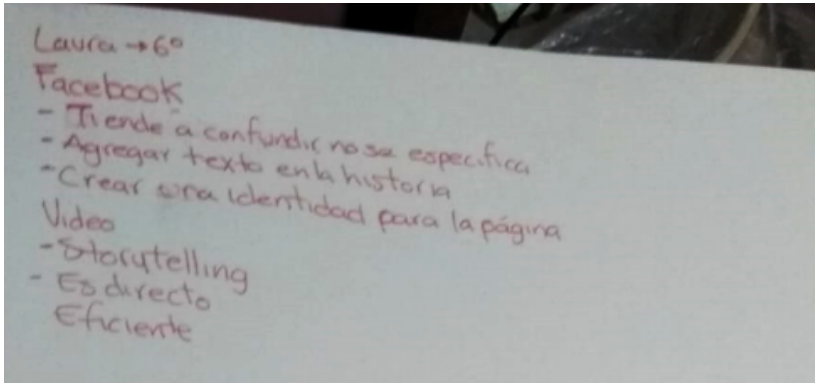 Laura → 6°
Facebook
- Tiende a confundir no se especifica
- Agregar texto en la historia
- Crear una identidad para la página
Video
- Storytelling
- Es directo
Eficiente